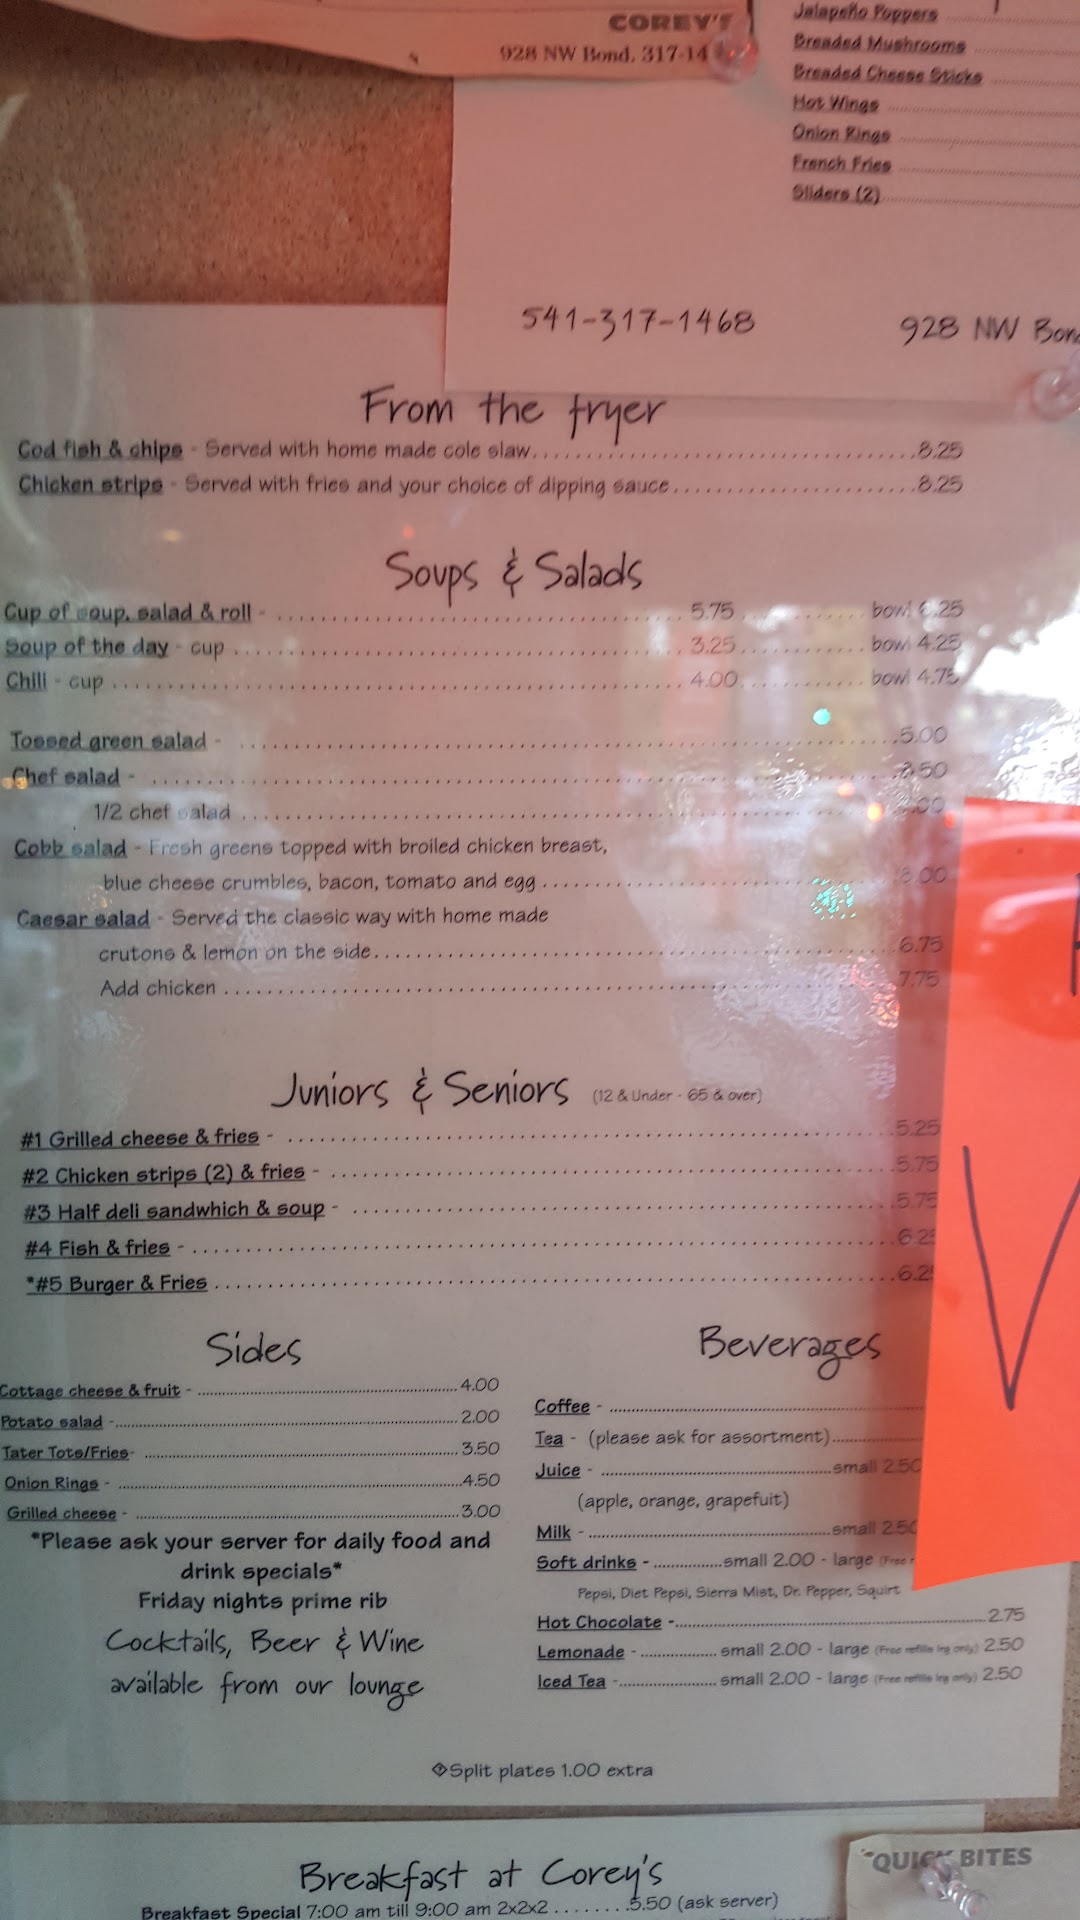 COREY'S
928 NW Bond, 317-14
Jalapeño Poppers
Breaded Mushrooms
Breaded Cheese Sticks
Hot Wings
Onion Rings
French Fries
Sliders (2)
541-317-1468 928 NW Bond
From the fryer
Cod fish & chips - Served with home made cole slaw 8.25
Chicken strips - Served with fries and your choice of dipping sauce 8.25
Soups & Salads
Cup of soup, salad & roll - 5.75 bowl 6.25
Soup of the day - cup 3.25 bowl 4.25
Chili - cup 4.00 bowl 4.75
Tossed green salad - 5.00
Chef salad -
1/2 chef salad
Cobb salad - Fresh greens topped with broiled chicken breast,
blue cheese crumbles, bacon, tomato and egg 8.00
Caesar salad - Served the classic way with home made
crutons & lemon on the side 6.75
Add chicken 7.75
Juniors & Seniors (12 & Under - 65 & over)
#1 Grilled cheese & fries - 5.25
#2 Chicken strips (2) & fries - 5.75
#3 Half deli sandwhich & soup - 5.75
#4 Fish & fries - 6.25
*#5 Burger & Fries 6.25
Sides
Cottage cheese & fruit - 4.00
Potato salad - 2.00
Tater Tots/Fries- 3.50
Onion Rings - 4.50
Grilled cheese - 3.00
*Please ask your server for daily food and
drink specials*
Friday nights prime rib
Cocktails, Beer & Wine
available from our lounge
Beverages
Coffee -
Tea - (please ask for assortment)
Juice - small 2.50
(apple, orange, grapefuit)
Milk - small 2.50
Soft drinks - small 2.00 - large (Free
Pepsi, Diet Pepsi, Sierra Mist, Dr. Pepper, Squirt
Hot Chocolate - 2.75
Lemonade - small 2.00 - large (Free refills lrg only) 2.50
Iced Tea - small 2.00 - large (Free refills lrg only) 2.50
Split plates 1.00 extra
V
Breakfast at Corey's
Breakfast Special 7:00 am till 9:00 am 2x2x2 5.50 (ask server)
QUICK BITES